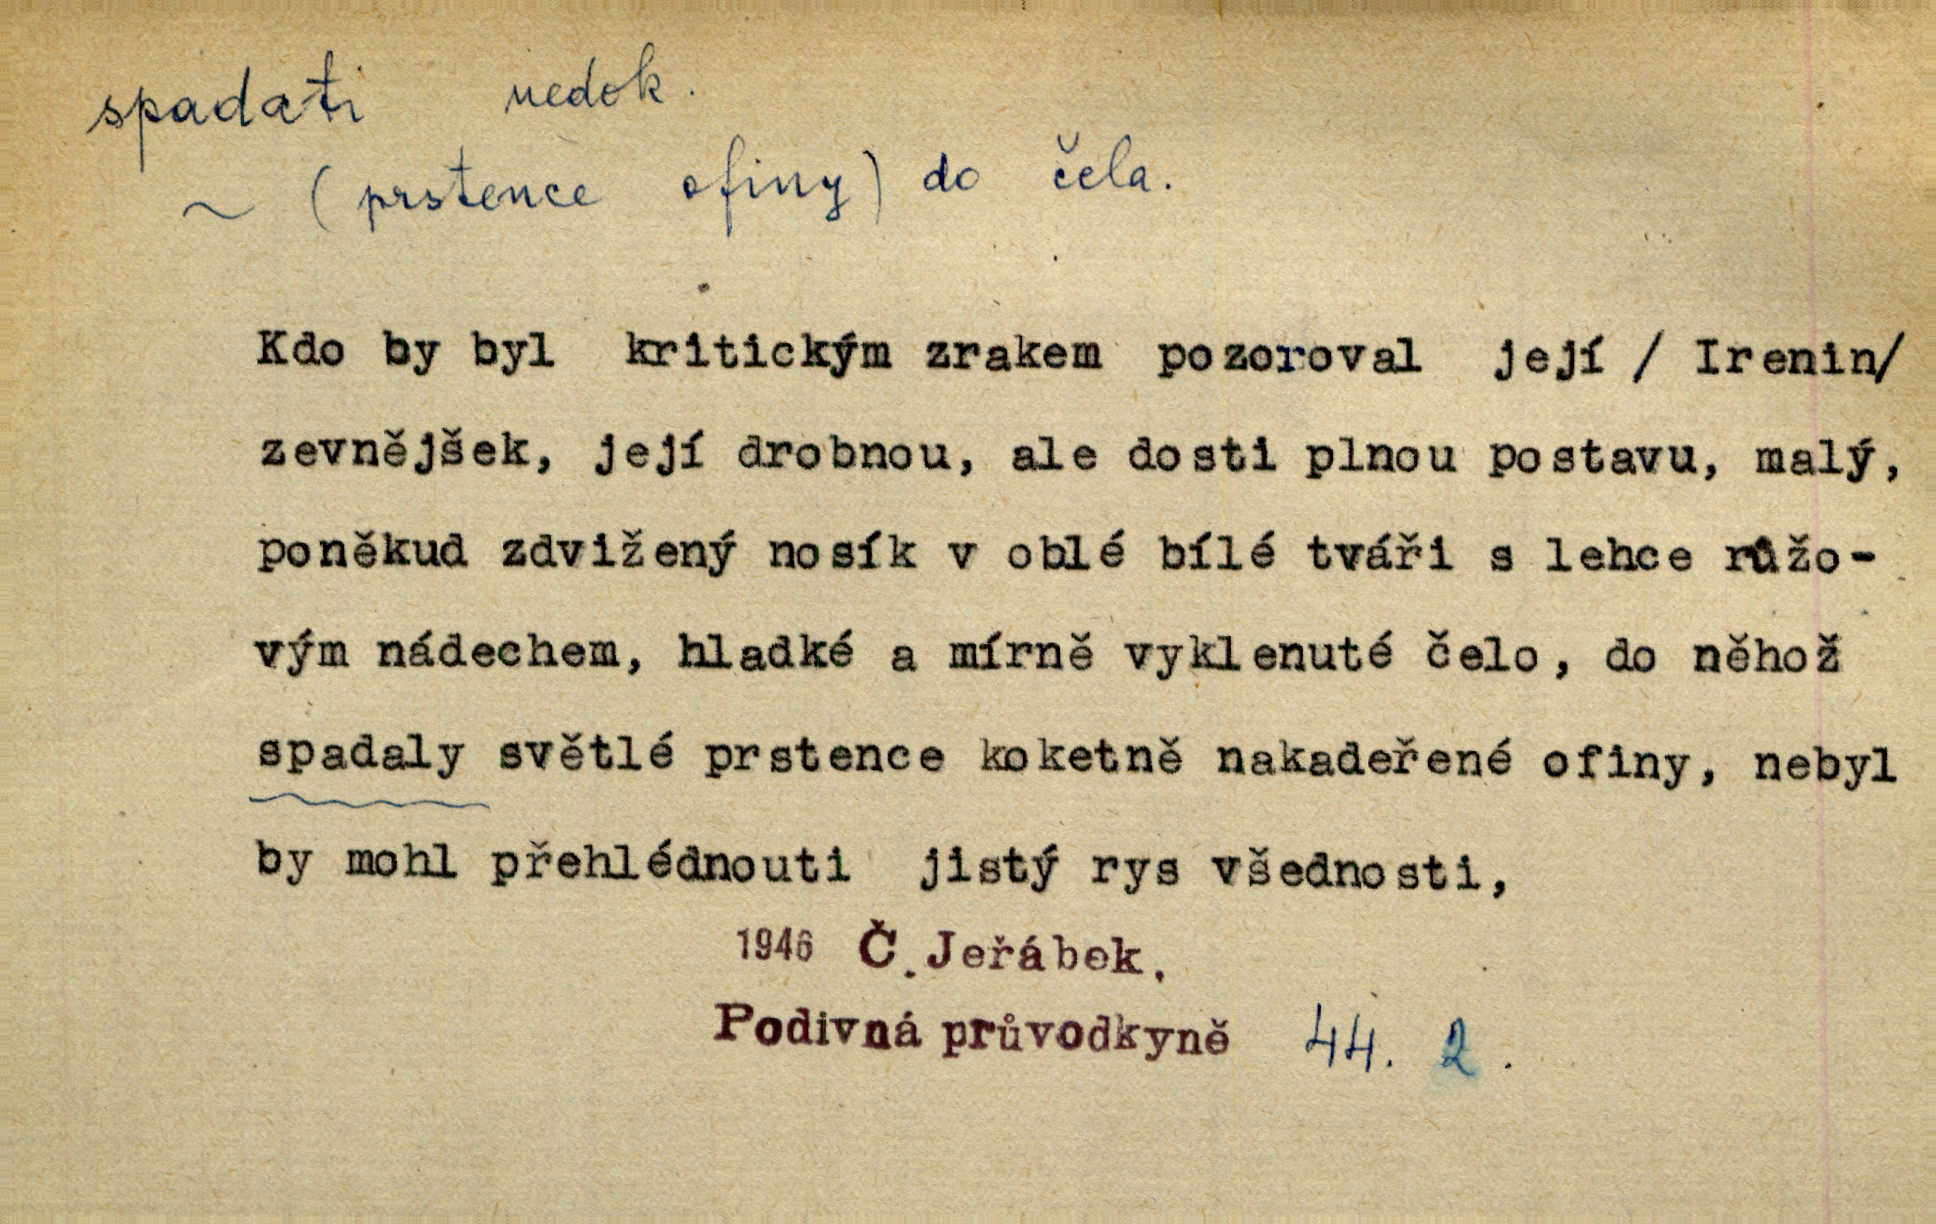 spadati nedok.
~ (prstence ofiny) do čela.
Kdo by byl kritickým zrakem pozoroval její / Irenin/
zevnějšek, její drobnou, ale dosti plnou postavu, malý,
poněkud zdvižený nosík v oblé bílé tváři s lehce růžo-
vým nádechem, hladké a mírně vyklenuté čelo, do něhož
spadaly světlé prstence koketně nakadeřené ofiny, nebyl
by mohl přehlédnouti jistý rys všednosti,
1946 Č.Jeřábek,
Podivná průvodkyně 44. 2.